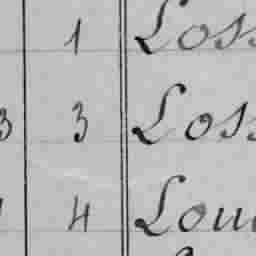 1 Loss
3 3 Loss
4 Lou